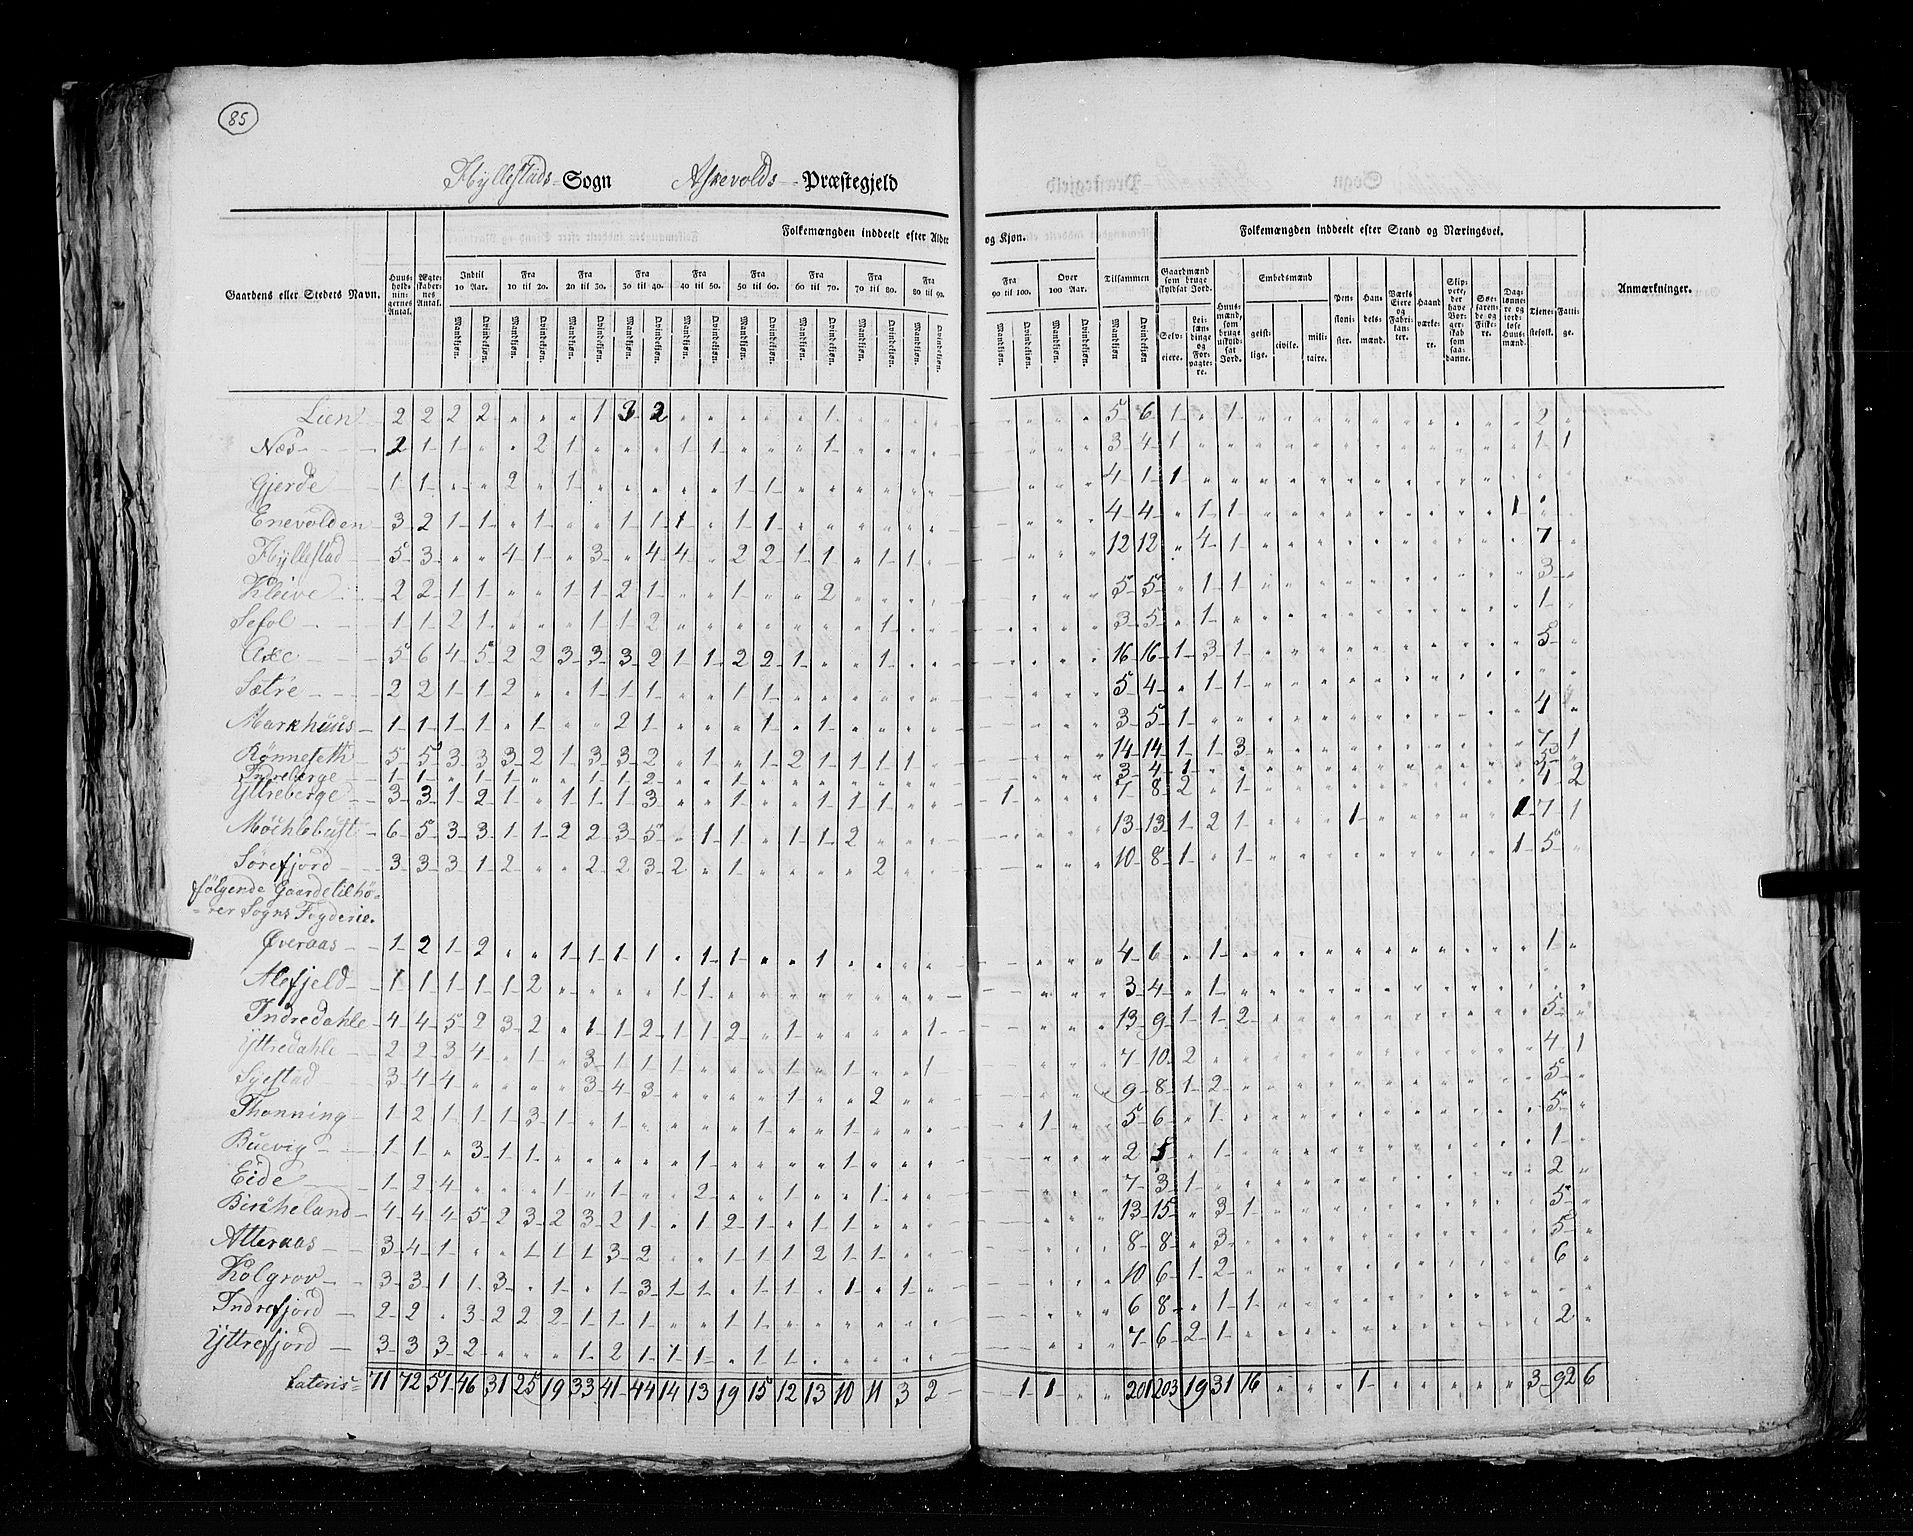 85
Hyllestads Sogn Askevolds Præstegjeld
Folkemængden inddeelt efter Alder og Kjøn.
Folkemængden inddeelt efter Stand og Næringsvei.
Gaardens eller Stedets Navn.
Huusholdningernes Antal.
Ægteskabernes Antal.
Indtil 10 Aar.
Fra 10 til 20.
Fra 20 til 30.
Fra 30 til 40.
Fra 40 til 50.
Fra 50 til 60.
Fra 60 til 70.
Fra 70 til 80.
Fra 80 til 90.
Fra 90 til 100.
Over 100 Aar.
Tilsammen
Mandkjøn. Qvindekjøn.
Gaardmænd som bruge skyldsat Jord.
Selveiere.
Leilændinge og Forpagtere.
Huusmænd, som bruge uskyldsat Jord.
Embedsmænd
geistlige. civile. militaire.
Pensionister.
Handelsmænd.
Værks Eiere og Fabrikanter.
Haandværkere.
Søefarende og Fiskere.
Daglønnere og jordløse Huusmænd.
Tjenestefolk.
Fattige.
Anmærkninger.
Lien 2 2 2 2 1 3 2 1 5 6 1 1 2
Næs 2 1 1 2 1 1 1 1 3 4 1 1 1
Gjerde 1 1 2 1 1 1 4 1 1
Enevolden 3 2 1 1 1 1 1 1 1 1 4 4 1 1 1
Hyllestad 5 3 4 1 3 4 4 2 2 1 1 1 1 12 12 4 1 7
Kleive 2 2 1 1 1 1 2 1 1 2 5 5 1 1 3
Sefol 1 1 2 1 1 1 2 1 3 5 1 1
Axe 5 6 4 5 2 2 3 3 3 2 1 1 2 2 1 1 16 16 1 3 1 5
Sætre 2 2 1 1 2 1 1 1 1 1 5 4 1 1
Markhuus 1 1 1 1 1 2 1 1 1 3 5 1 4
Rønneseth 5 5 3 3 3 2 1 3 3 2 1 1 2 1 1 1 14 14 1 1 3 7 1
Indreberge 1 1 1 1 1 1 2 1 3 4 1 5
Yttreberge 3 3 1 2 1 1 1 1 3 1 1 1 1 1 7 8 2 1 4 2
Møchlebust 6 5 3 3 1 1 2 2 3 5 1 1 1 1 2 13 13 1 2 1 1 1 7 1
Sørefjord 3 3 3 1 2 2 2 3 2 1 2 10 8 1 1 1 5
følgende Gaarde tilhø-
-rer Sogns Fogderie.
Øveraas 1 2 1 2 1 1 1 1 1 1 1 4 6 1 1
Alefjeld 1 1 1 1 1 2 1 1 3 4 1
Indredahle 4 4 5 2 3 2 1 1 2 1 1 2 1 1 13 9 1 1 2 5
Yttredahle 2 2 3 4 1 3 1 1 1 1 1 1 7 10 2 4 1
Syestad 3 4 4 3 4 3 1 2 9 8 1 2 5
Thonning 1 2 1 1 1 3 1 1 1 1 1 5 6 1 5
Buevig 1 1 3 1 1 1 1 2 5 1 1
Eide 1 2 4 1 1 2 1 1 7 3 1 2
Bircheland 4 4 4 5 2 3 2 3 2 1 1 2 1 1 1 13 15 3 1 5
Atteraas 3 4 1 1 1 1 3 2 1 1 1 2 1 1 8 8 3 5
Kolgrov 3 3 1 1 3 1 1 3 1 1 1 1 1 1 10 6 1 2 6
Indrefjord 2 2 3 2 2 2 1 1 1 1 1 6 8 1 1
Yttrefjord 3 3 3 2 1 2 1 1 1 1 1 7 6 2 1 2
Lateris 71 72 51 46 31 25 19 33 41 44 14 13 19 15 12 13 10 11 3 2 1 1 201 203 19 31 16 1 3 92 6